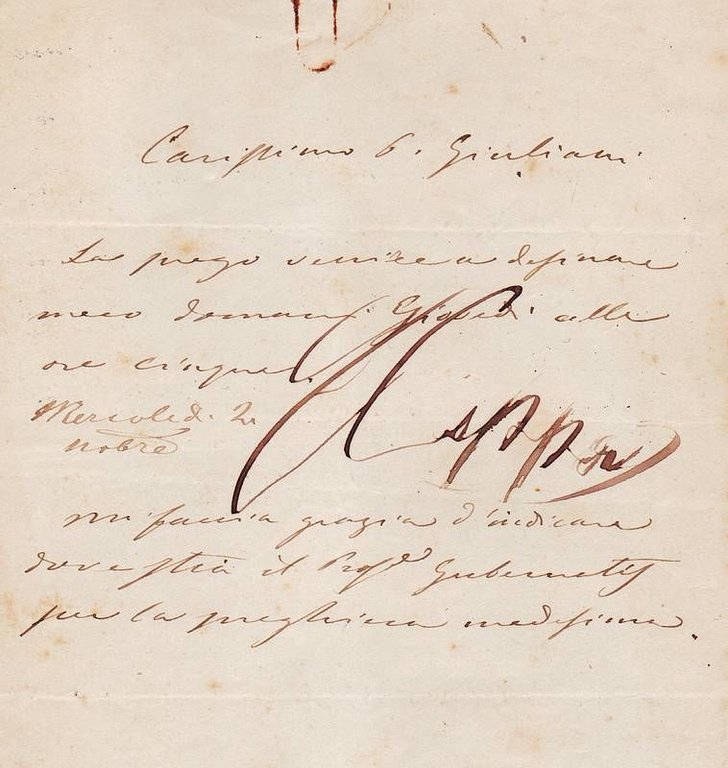 Carissimo P. Giuliani
La prego venire a desinare
meco domani Giovedì alle
ore cinque.
Mercoledì 2.
nobre
mi faccia grazia d'indicare
dove stia il Profe Gubernatis
per la preghiera medesima.